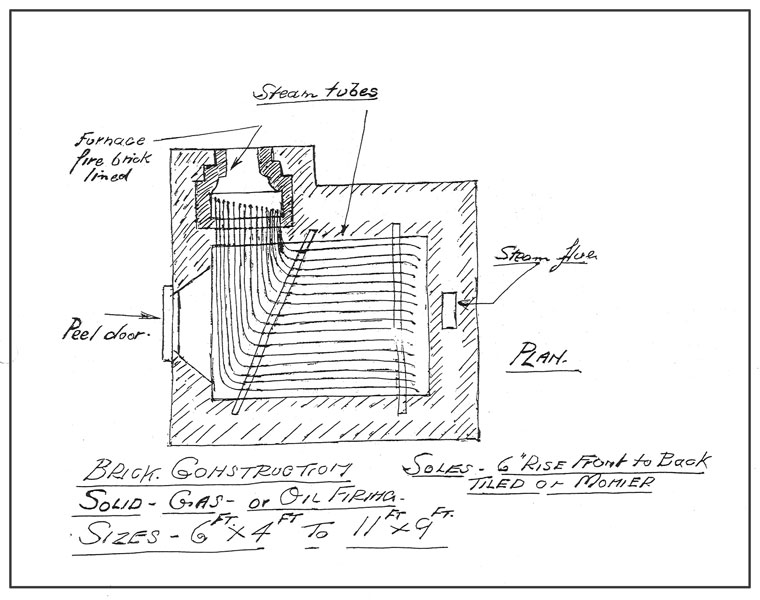 Steam tubes
Furnace
fire brick
lined
Steam flue
Peel door.
PLAN.
BRICK CONSTRUCTION
SOLID - GAS - or OIL FIRING.
SIZES - 6FT. X 4FT TO 11FT X 9FT.
SOLES - 6" RISE FRONT to BACK
TILED or MONIER